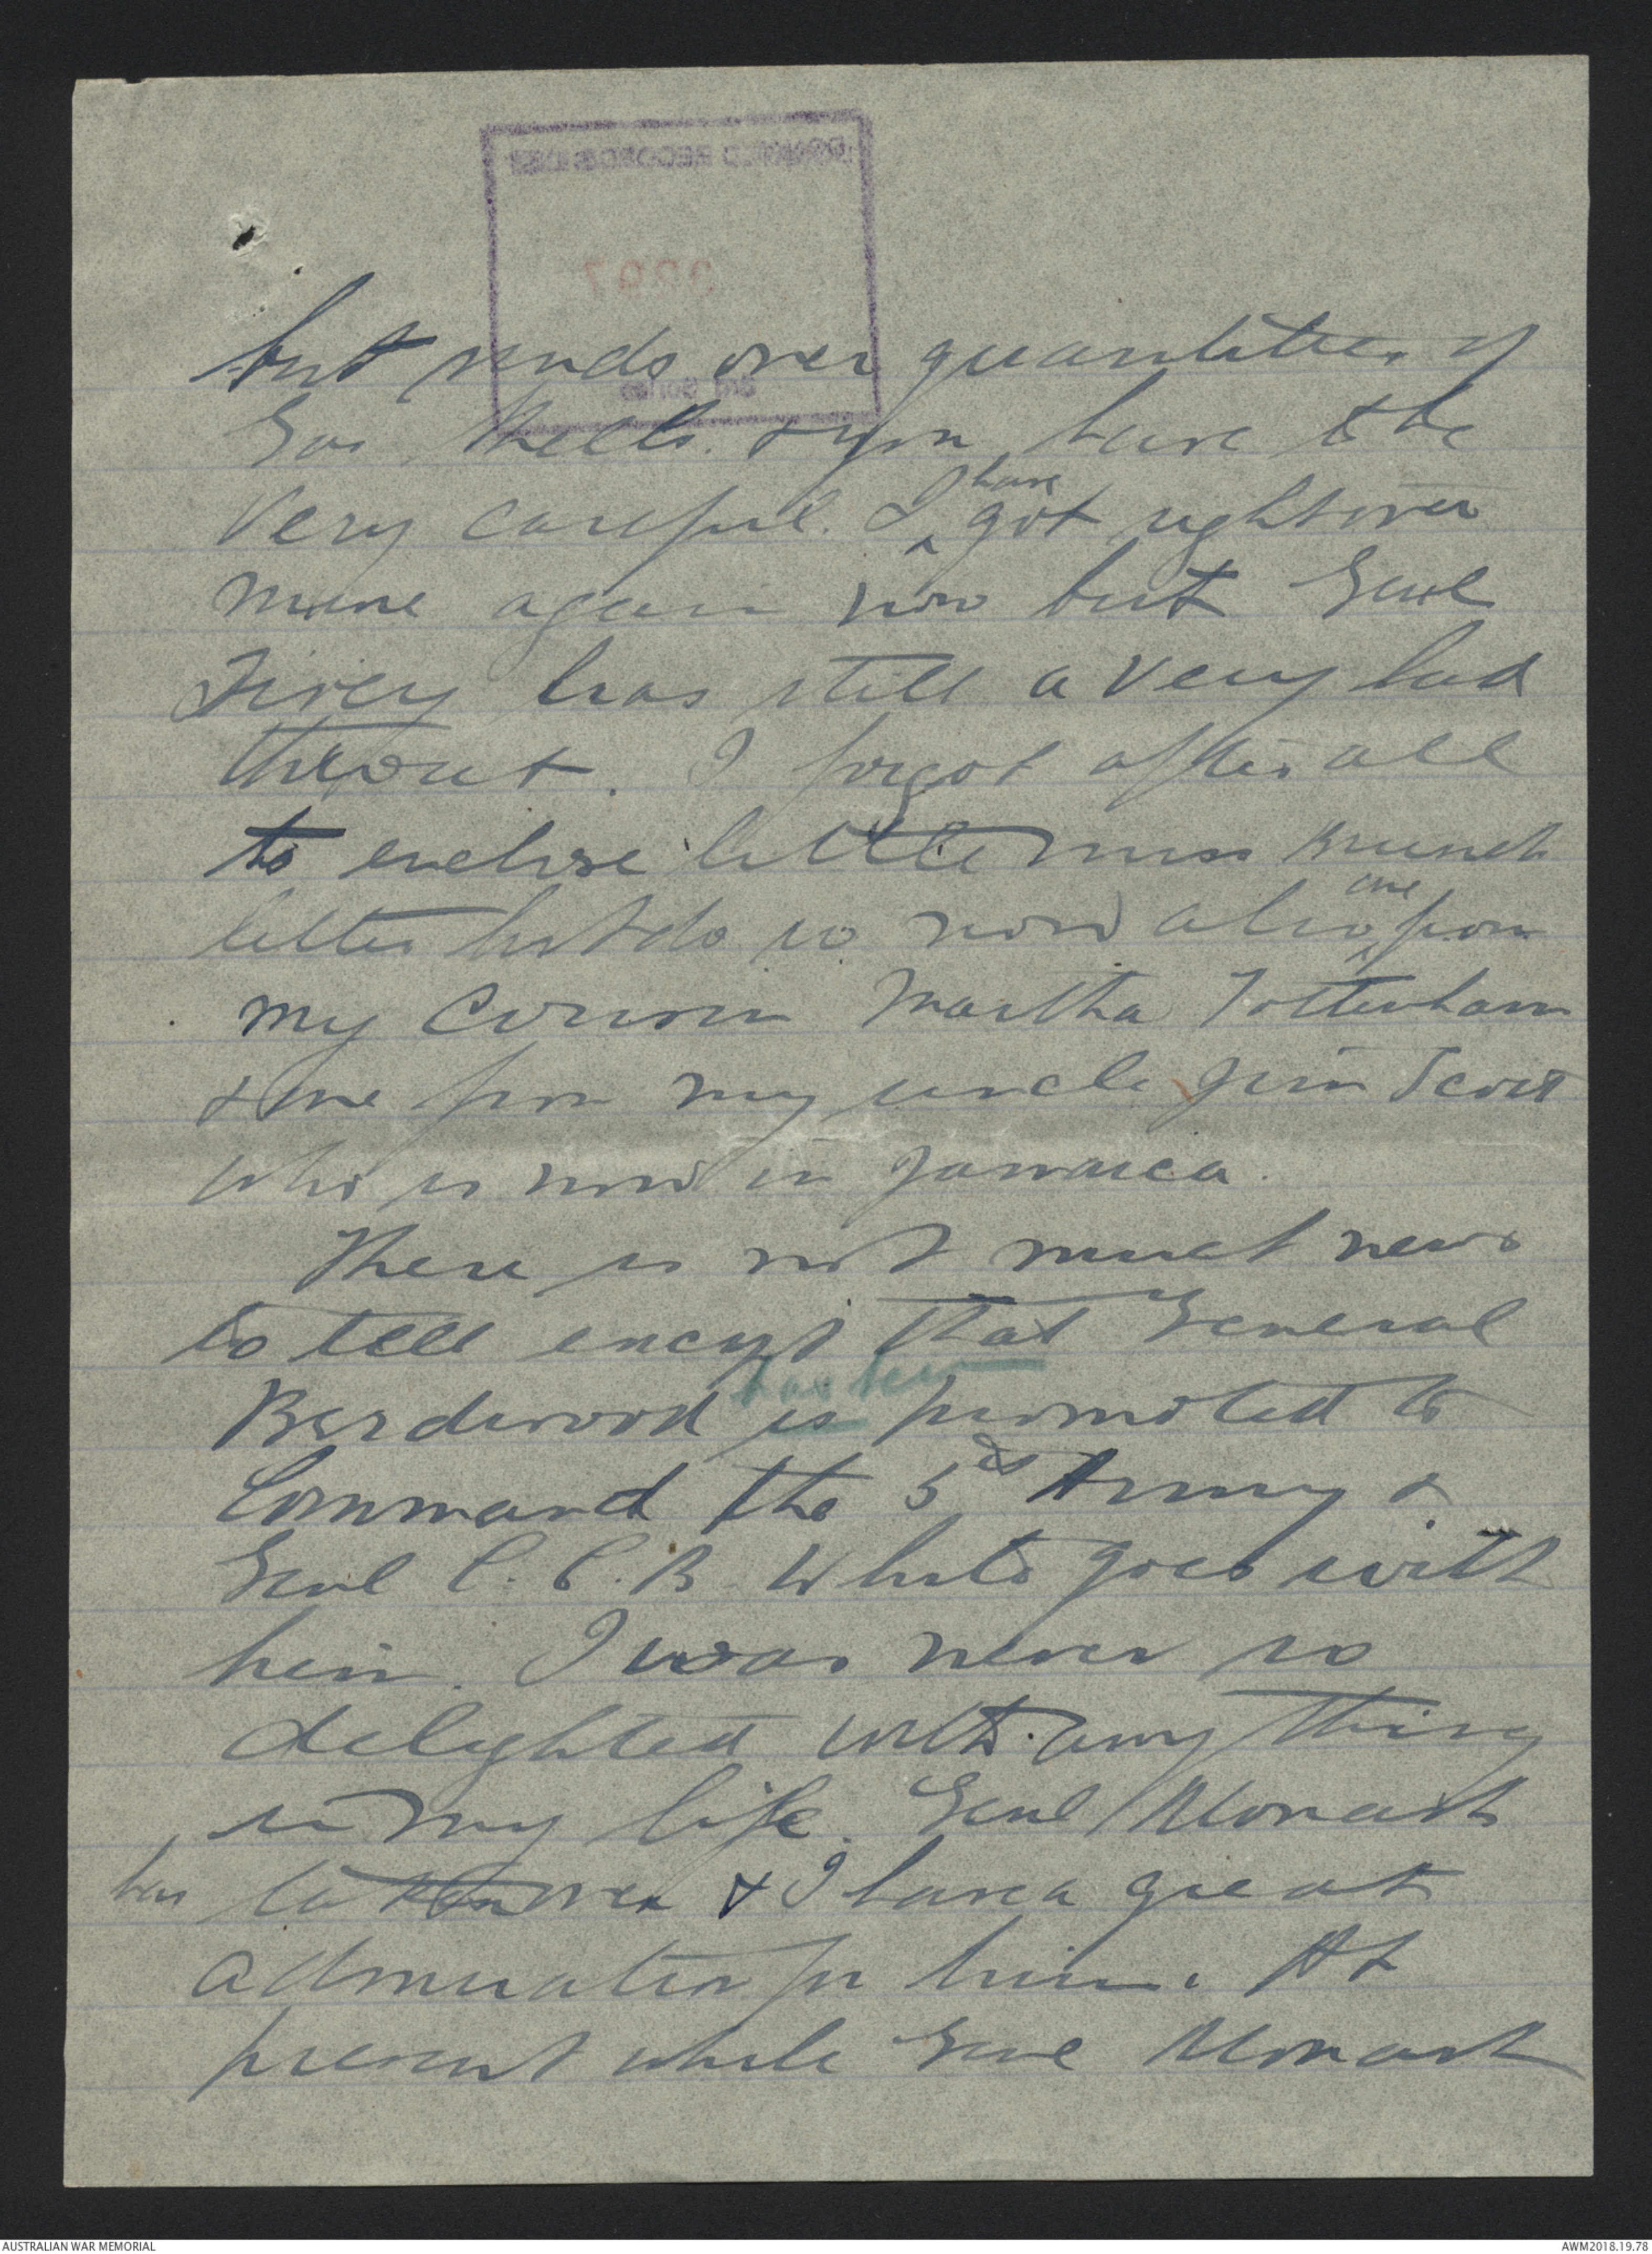 but sends over quantities of
Gas shells. & you have to be
very careful. I have got right over
mine again now but Genl
Tivey has still a very bad
throat. I forgot after all
to enclose little miss
letter but do so now also one from
my cousin Martha Tottenham
& one from my uncle Jim Scott
who is now in Jamaica.
There is not much news
to tell except that General
has been
Birdwood is promoted to
Command the 5th Army &
Genl C. C. B. White goes with
him. I was never so
delighted with any thing
in my life. Genl Monash
has taken over & I have a great
admiration for him. At
present while Genl Monash
AUSTRALIAN WAR MEMORIAL
AWM2018.19.78